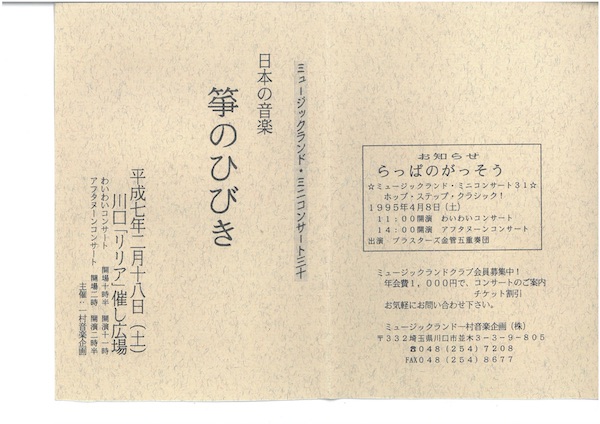 ミュージックランド・ミニコンサート三十
日本の音楽
箏のひびき
平成七年二月十八日（土）
川口「リリア」催し広場
わいわいコンサート　開場十時半　開演十一時
アフタヌーンコンサート　開場二時　開演二時半
主催：一村音楽企画
お知らせ
らっぱのがっそう
☆ミュージックランド・ミニコンサート３１☆
ホップ・ステップ・クラシック！
１９９５年４月８日（土）
１１：００開演　わいわいコンサート
１４：００開演　アフタヌーンコンサート
出演　ブラスターズ金管五重奏団
ミュージックランドクラブ会員募集中！
年会費１，０００円で、コンサートのご案内
チケット割引
お気軽にお問い合わせ下さい。
ミュージックランド一村音楽企画（株）
〒３３２埼玉県川口市並木３－３－９－８０５
☎０４８（２５４）７２０８
FAX０４８（２５４）８６７７